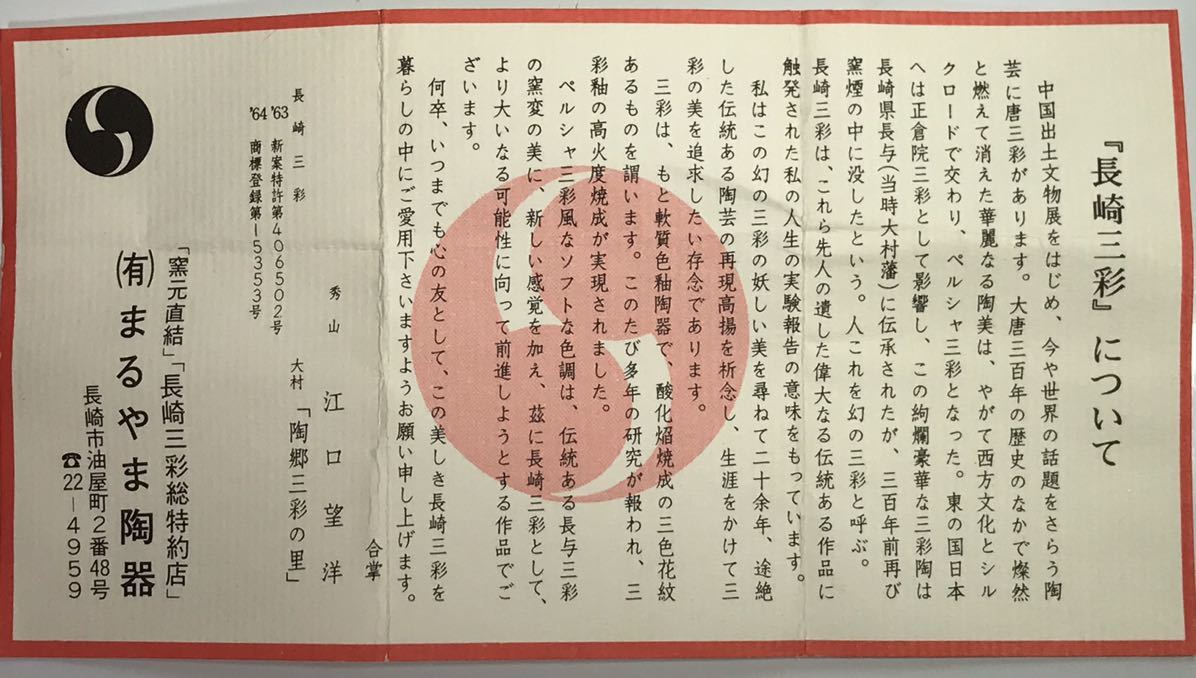 『長崎三彩』について
中国出土文物展をはじめ、今や世界の話題をさらう陶
芸に唐三彩があります。大唐三百年の歴史のなかで燦然
と燃えて消えた華麗なる陶美は、やがて西方文化とシル
クロードで交わり、ペルシャ三彩となった。東の国日本
へは正倉院三彩として影響し、この絢爛豪華な三彩陶は
長崎県長与(当時大村藩)に伝承されたが、三百年前再び
窯煙の中に没したという。人これを幻の三彩と呼ぶ。
長崎三彩は、これら先人の遺した偉大なる伝統ある作品に
触発された私の人生の実験報告の意味をもっています。
私はこの幻の三彩の妖しい美を尋ねて二十余年、途絶
した伝統ある陶芸の再現高揚を祈念し、生涯をかけて三
彩の美を追求したい存念であります。
三彩は、もと軟質色釉陶器で、酸化焔焼成の三色花紋
あるものを謂います。このたび多年の研究が報われ、三
彩釉の高火度焼成が実現されました。
ペルシャ三彩風なソフトな色調は、伝統ある長与三彩
の窯変の美に、新しい感覚を加え、玆に長崎三彩として、
より大いなる可能性に向って前進しようとする作品でご
ざいます。
何卒、いつまでも心の友として、この美しき長崎三彩を
暮らしの中にご愛用下さいますようお願い申し上げます。
合掌
秀山 江口望洋
大村「陶郷三彩の里」
長崎三彩
'63 新案特許第406502号
'64 商標登録第15353号
「窯元直結」「長崎三彩総特約店」
(有)まるやま陶器
長崎市油屋町2番48号
☎22-4959